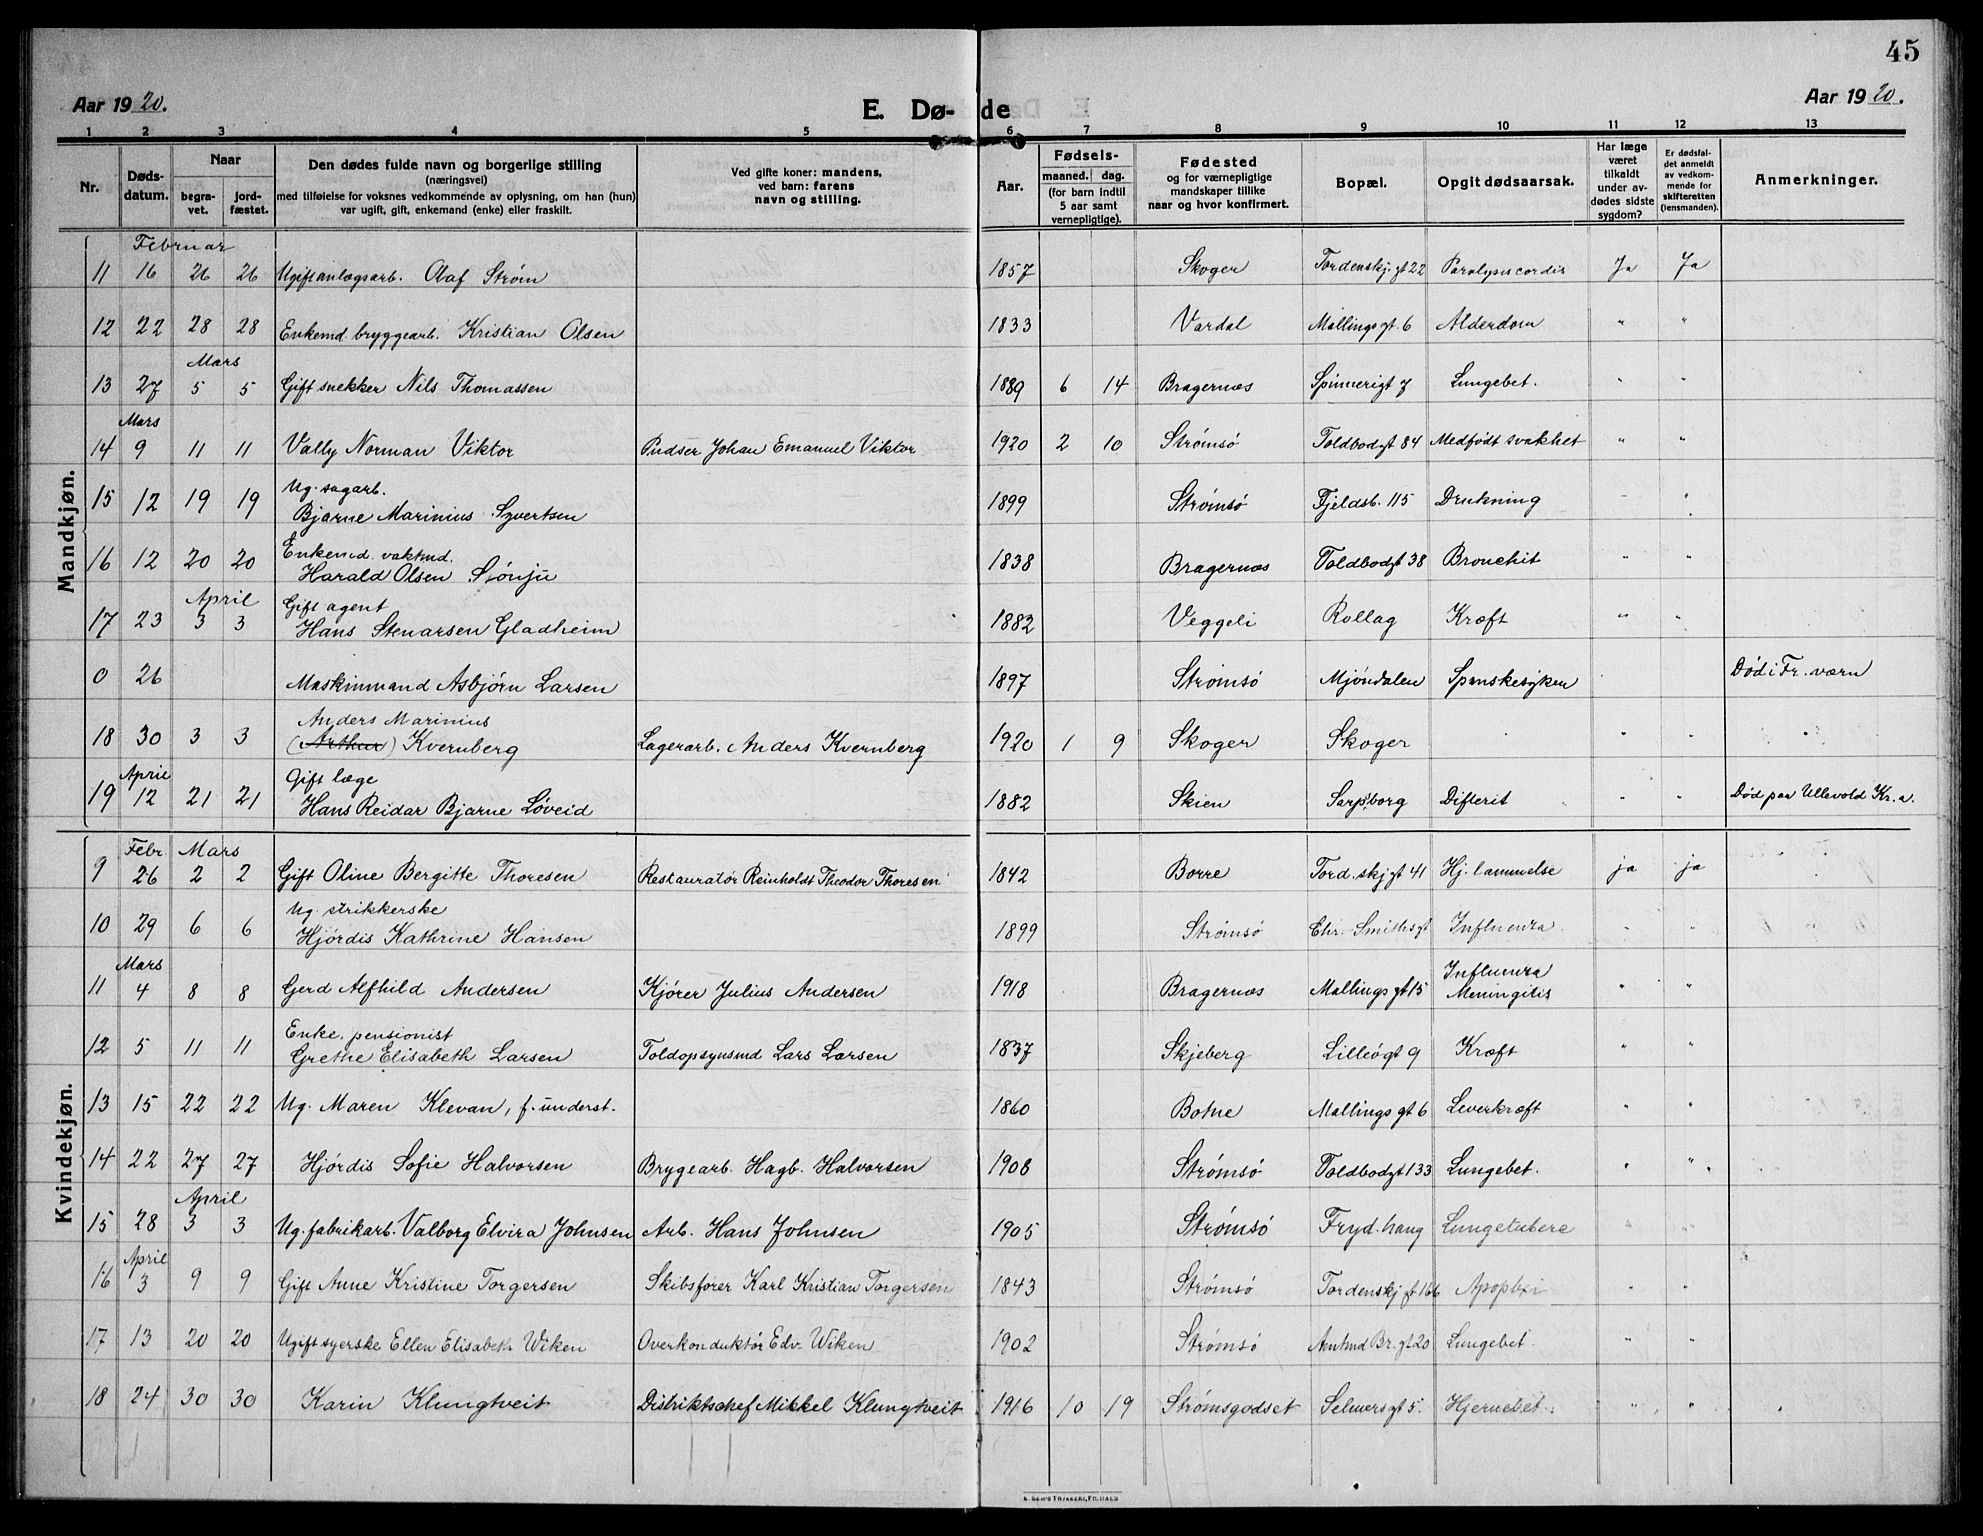 45
Aar 1920. E. Dø- de Aar 1920.
1 2 3 4 5 6 7 8 9 10 11 12 13
Nr. Døds-datum. Naar begra-vet. jord-fæstet. Den dødes fulde navn og borgerlige stilling (næringsvei) med tilføielse for voksnes vedkommende av oplysning, om han (hun) var ugift, gift, enkemand (enke) eller fraskilt. Ved gifte koner: mandens, ved barn: farens navn og stilling. Aar. Fødsels- maaned. dag. (for barn indtil 5 aar samt vernepligtige). Fødested og for værnepligtige mandskaper tillike naar og hvor konfirmert. Bopæl. Opgit dødsaarsak. Har læge været tilkaldt under av-dødes sidste sygdom? Er dødsfal-det anmeldt av vedkom-mende for skifteretten (lensmanden). Anmerkninger.
Mandkjøn.
Februar
11 16 26 26 Ugift anlægsarb. Olaf Strøm 1857 Skoger Tordenskj. gt 22 Paralysis cordis Ja Ja
12 22 28 28 Enkemd. bryggearb. Kristian Olsen 1833 Vardal Mallings gt. 6 Alderdom " "
Mars
13 27 5 5 Gift snekker Nils Thomassen 1889 6 14 Bragernæs Spinnerigt 7 Lungebet. " "
Mars
14 9 11 11 Vally Norman Viktor Pudser Johan Emanuel Viktor 1920 2 10 Strømsø Toldbodgt 84 Medfødt svakhet " "
Ug. sagarb.
15 12 19 19 Bjarne Marinius Syvertsen 1899 Strømsø Fjeldsb. 115 Drukning - "
Enkemd. vaktmd.
16 12 20 20 Harald Olsen Sjönju 1838 Bragernæs Toldbodgt 38 Bronchit " "
April Gift agent
17 23 3 3 Hans Stenarsen Gladheim 1882 Veggeli Rollag Kræft " "
0 26 Maskinmand Asbjörn Larsen 1897 Strømsø Mjöndalen Spanskesyken Död i Fr. værn
Anders Marinius
18 30 3 3 (Arthur) Kvernberg Lagerarb. Anders Kvernberg 1920 1 9 Skoger Skoger " "
April Gift læge
19 12 21 21 Hans Reidar Bjarne Løveid 1882 Skien Sarpsborg Difterit " " Död paa Ullevold Kr.a.
Kvindekjøn.
Febr Mars
9 26 2 2 Gift Oline Bergitte Thoresen Restauratør Reinholdt Theodor Thoresen 1842 Borre Tord.skj gt 41 Hj. lammelse ja ja
Ug. strikkerske
10 29 6 6 Hjördis Kathrine Hansen 1899 Strømsø Chr. Smiths gt Influenza " "
Mars Influenza
11 4 8 8 Gerd Alfhild Andersen Kjører Julius Andersen 1918 Bragernæs Mallings gt 15 Meningitis " "
Enke, pensionist
12 5 11 11 Grethe Elisabeth Larsen Toldopsynsmd Lars Larsen 1837 Skjeberg Lilleögt 9 Kræft " "
13 15 22 22 Ug. Maren Klevan, f. underst. 1860 Botne Mallings gt 6 Leverkræft " "
14 22 27 27 Hjördis Sofie Halvorsen Brygearb. Hagb. Halvorsen 1908 Strømsø Toldbodgt 133 Lungebet. " "
April
15 28 3 3 Ug. fabrikarb. Valborg Elvira Johnsen Arb. Hans Johnsen 1905 Strømsø Fryd.haug Lungetubere " "
April
16 3 9 9 Gift Anne Kristine Torgersen Skibsfører Karl Kristian Torgersen 1843 Strømsø Tordenskj gt Apoplexi " "
17 13 20 20 Ugift syerske Ellen Elisabeth Wiken Overkonduktør Edv. Wiken 1902 Strømsø Amtmd Br. gt 20 Lungebet. " "
18 24 30 30 Karin Klungtveit Distriktschef Mikkel Klungtveit 1916 10 19 Strømsgodset Selmers gt 5. Hjernebet. " "